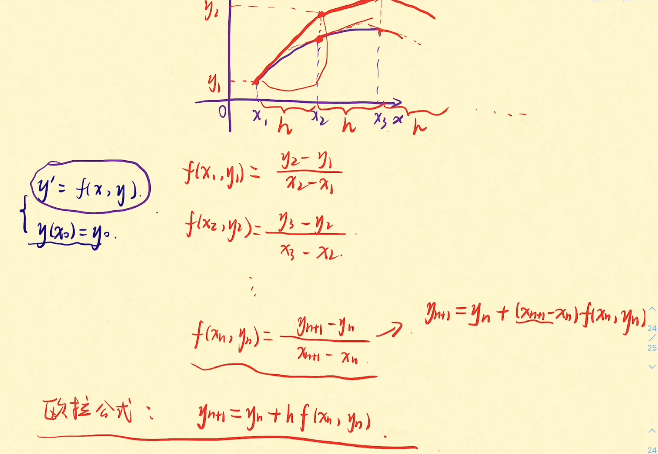 y₂
y₁
0 x₁ x₂ x₃ x
h h h
y' = f(x, y).
y(x₀) = y₀.
f(x₁, y₁) = (y₂ - y₁)/(x₂ - x₁)
f(x₂, y₂) = (y₃ - y₂)/(x₃ - x₂).
⋮
f(xₙ, yₙ) = (yₙ₊₁ - yₙ)/(xₙ₊₁ - xₙ) → yₙ₊₁ = yₙ + (xₙ₊₁ - xₙ)·f(xₙ, yₙ)
欧拉公式: yₙ₊₁ = yₙ + h f(xₙ, yₙ).
24
25
24